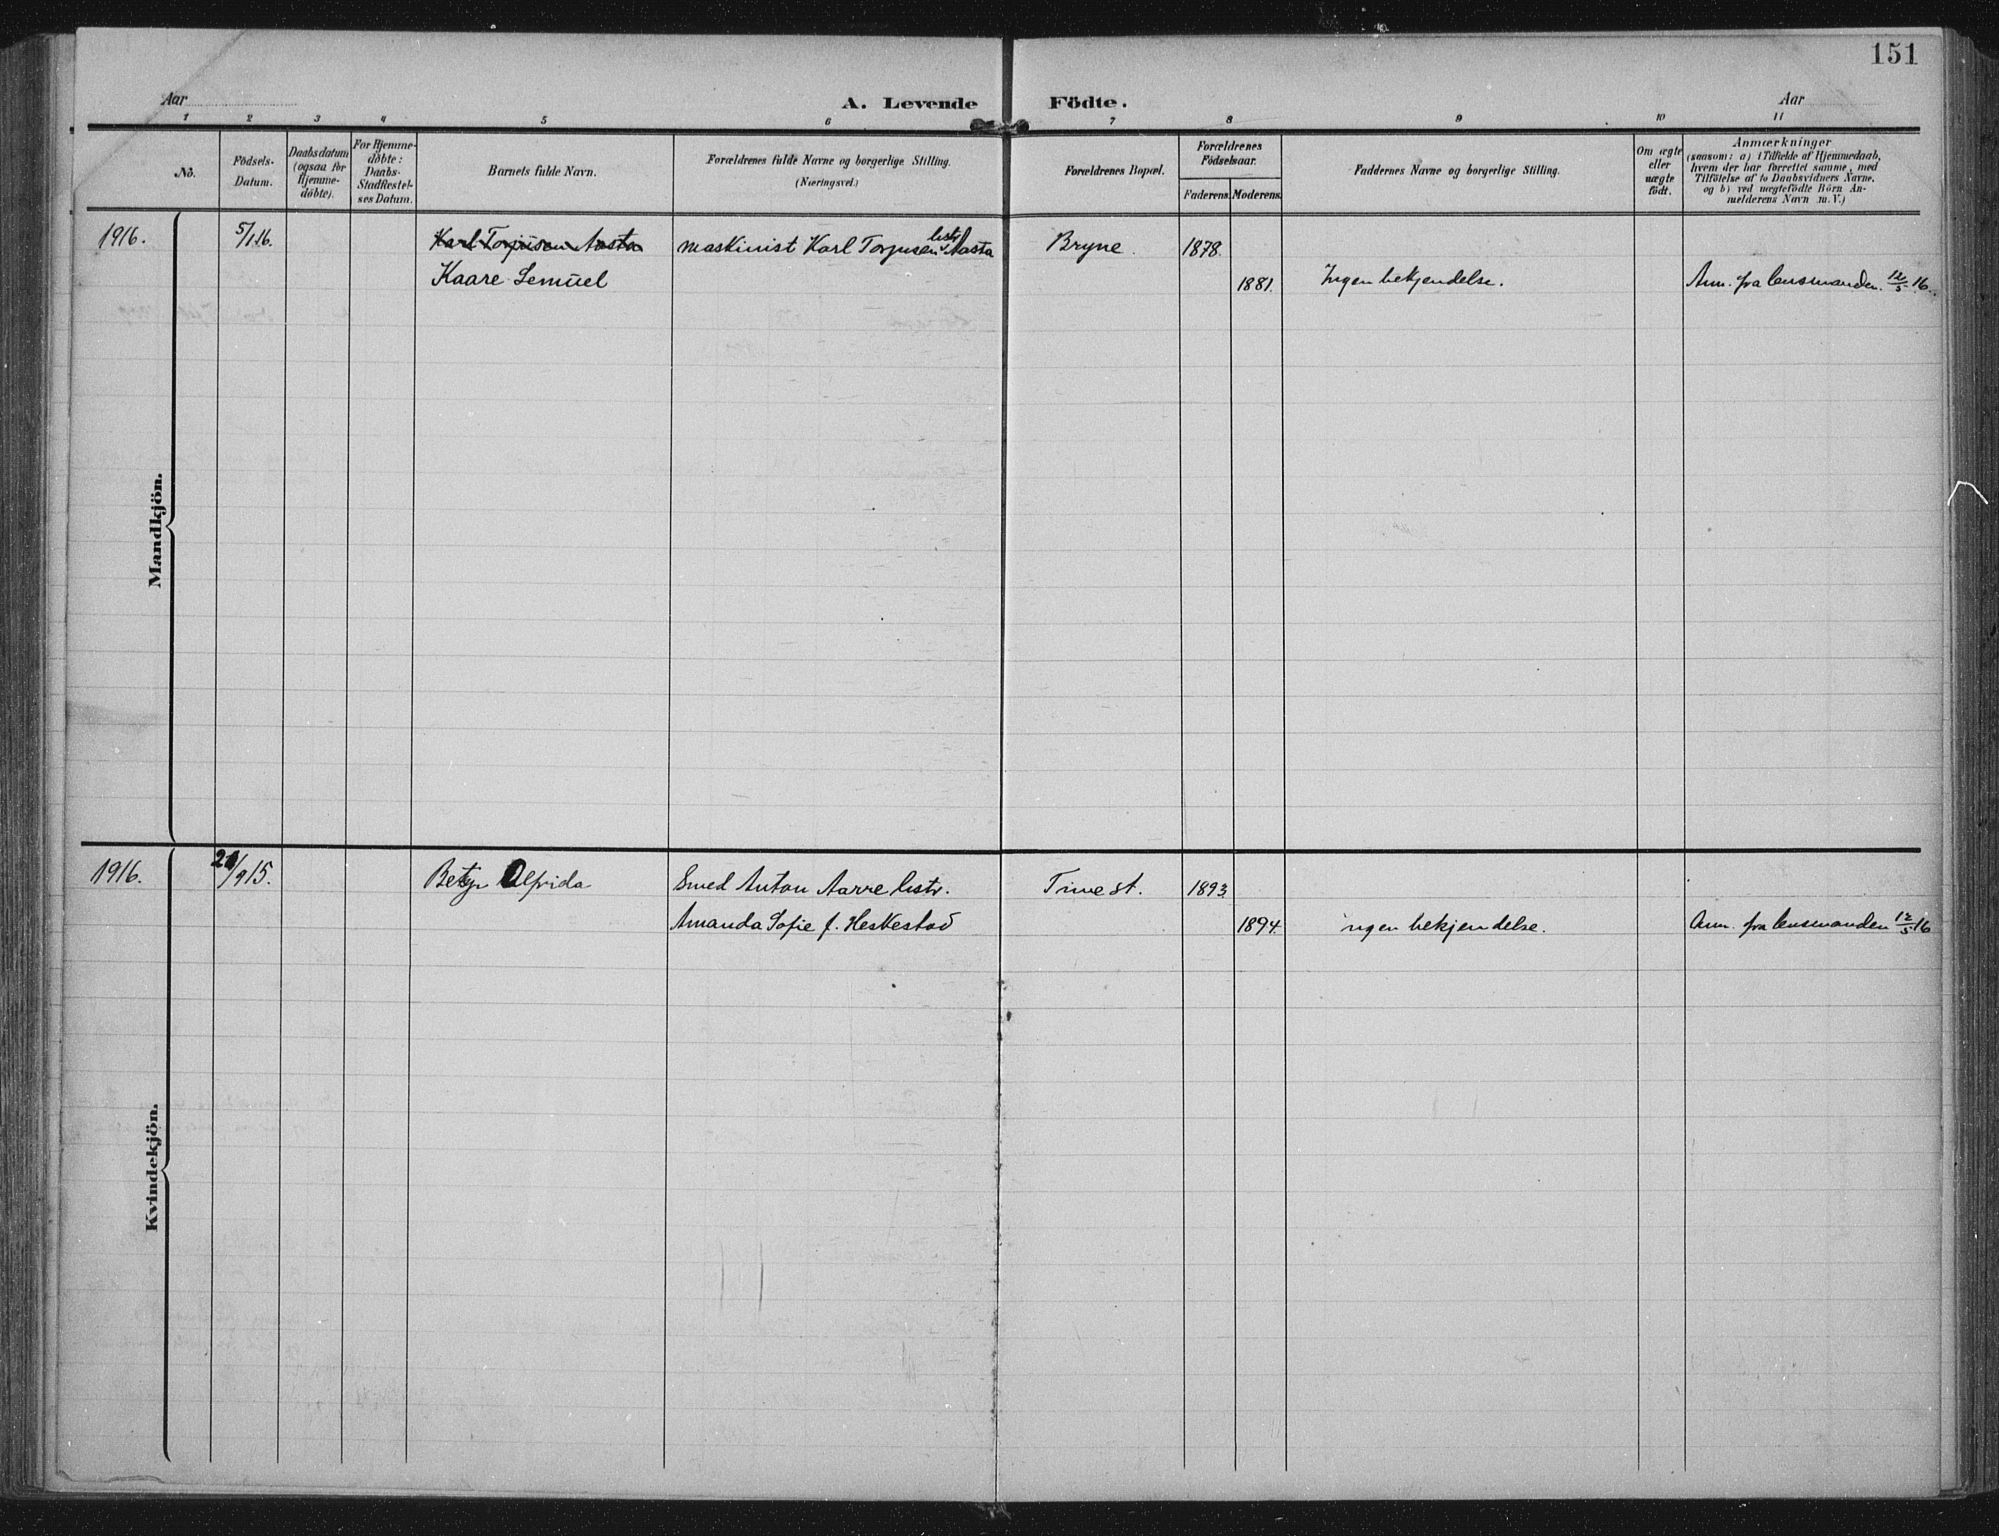 151
Aar
A. Levende Födte.
Aar
1 2 3 4 5 6 7 8 9 10 11
No.
Födsels-
Datum.
Daabsdatum
(ogsaa for
Hjemme-
döbte).
For Hjemme-
döbte:
Daabs-
Stadfæstel-
ses Datum.
Barnets fulde Navn.
Forældrenes fulde Navne og borgerlige Stilling.
(Næringsvei.)
Forældrenes Bopæl.
Forældrenes
Födselsaar.
Faderens. Moderens.
Faddernes Navne og borgerlige Stilling.
Om ægte
eller
uægte
födt.
Anmærkninger
(saasom: a) i Tilfælde af Hjemmedaab,
hvem der har forrettet samme, med
Tilföielse af to Daabsvidners Navne.
og b) ved uægtefödte Börn An-
melderens Navn m.V.)
Mandkjön.
1916. 5/1 16. Karl Torjusen Aasta maskinist Karl Torjusen hstr Aasta Bryne. 1878.
Kaare Lemuel 1881. Ingen bekjendelse. Anm. fra lensmanden. 12/5 16.
Kvindekjön.
1916. /9 15. Betzy Alfrida Smed Anton Aarre hstr. Time st. 1893
Amanda Sofie f. Heskestad 1894. ingen bekjendelse. Anm. fra lensmanden 12/5 16